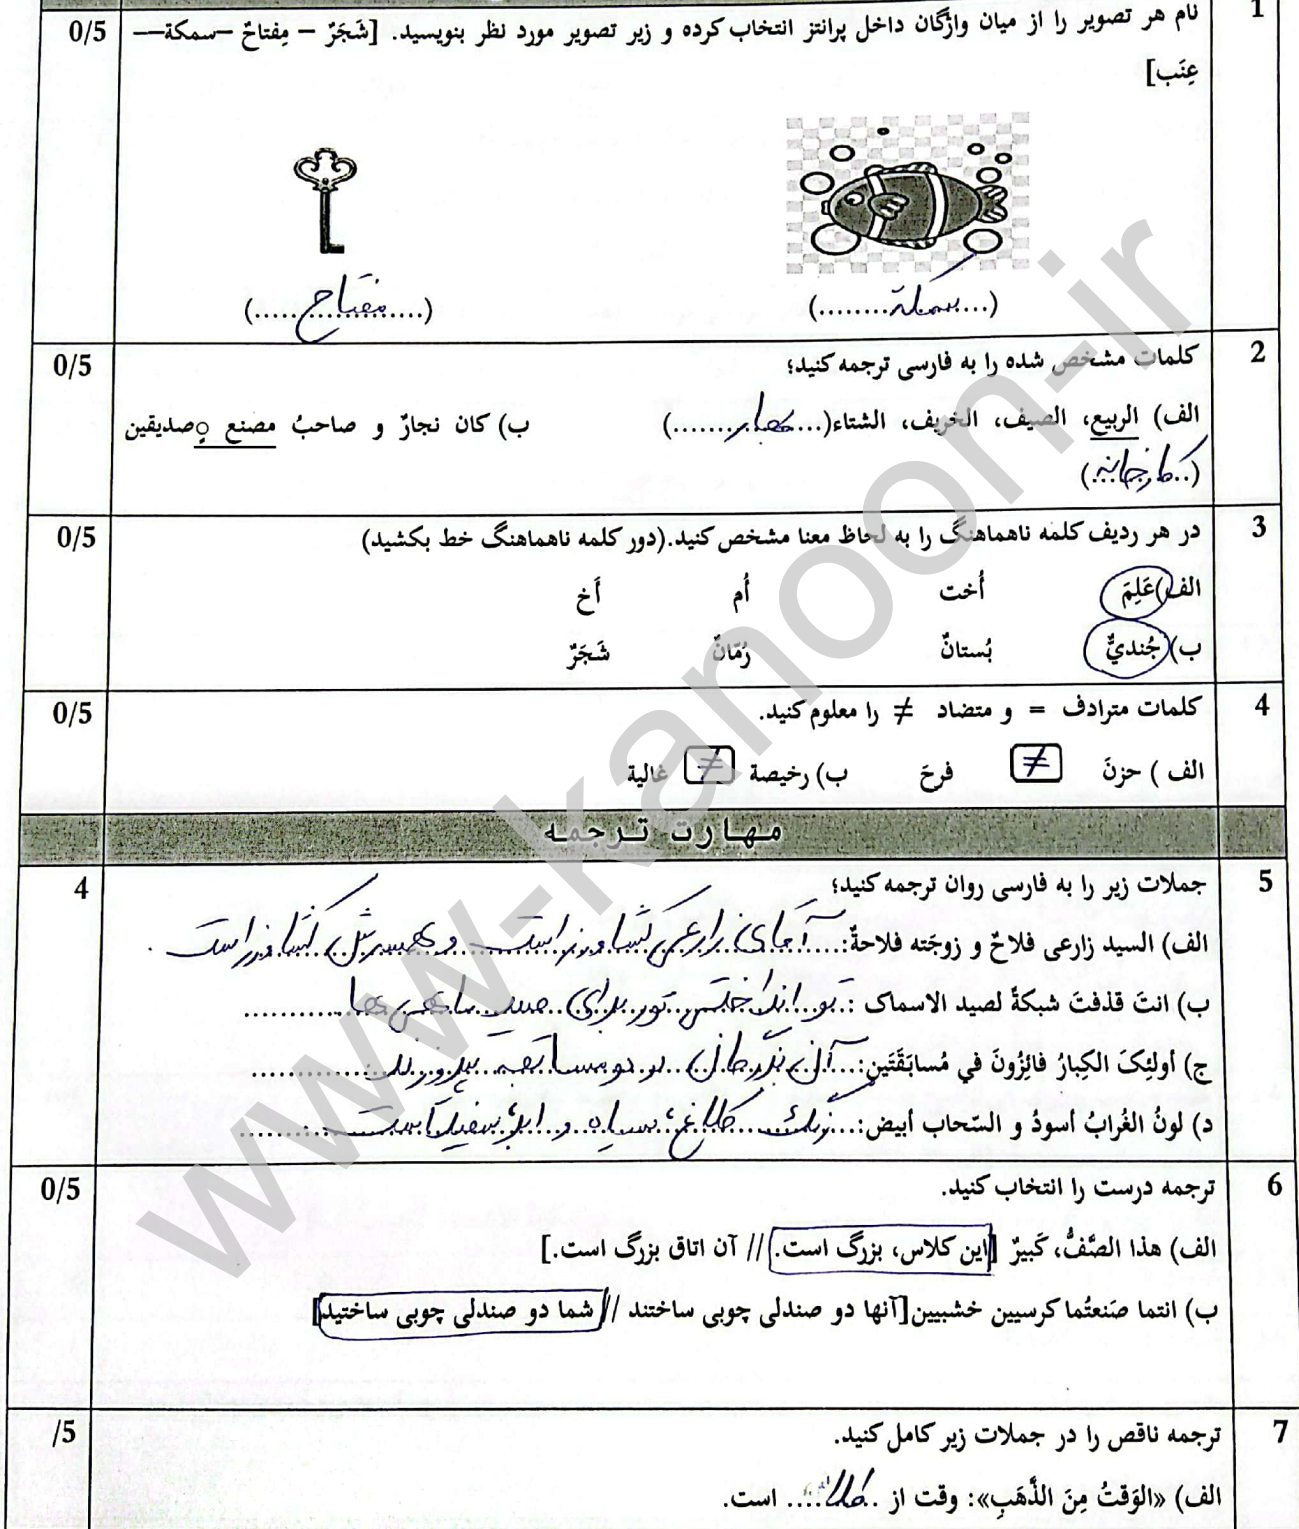 1
نام هر تصویر را از میان واژگان داخل پرانتز انتخاب کرده و زیر تصویر مورد نظر بنویسید. [شَجَرٌ – مِفتاحٌ –سمکة—
0/5
عِنَب]
(...سمكة........)
(.....مفتاح......)
2
کلمات مشخص شده را به فارسی ترجمه کنید؛
0/5
الف) الربیع، الصیف، الخریف، الشتاء(....بهار.......)
ب) کان نجارٌ و صاحبُ مصنع ٍصدیقین
(..کارخانه..)
3
در هر ردیف کلمه ناهماهنگ را به لحاظ معنا مشخص کنید.(دور کلمه ناهماهنگ خط بکشید)
0/5
الف)عَلِمَ أُخت أُم أَخ
ب)جُنديٌّ بُستانٌ رُمّانٌ شَجَرٌ
4
کلمات مترادف = و متضاد ≠ را معلوم کنید.
0/5
الف ) حزنَ ≠ فرحَ ب) رخیصة ≠ غالیة
مهارت ترجمه
5
جملات زیر را به فارسی روان ترجمه کنید؛
4
الف) السید زارعی فلاحٌ و زوجَته فلاحةٌ:.....آقای زارعی کشاورز است و همسرش کشاورز است.
ب) انتَ قذفتَ شبکةً لصید الاسماک :.تو انداختی تور برای صید ماهی ها............
ج) أولئِکَ الکِبارُ فائِزُونَ في مُسابَقَتَینِ:...آن بزرگان در دو مسابقه پیروزند.............
د) لونُ الغُرابُ أسودُ و السّحاب أبیض:...رنگ کلاغ سیاه و ابر سفید است...........
6
ترجمه درست را انتخاب کنید.
0/5
الف) هذا الصَّفُّ، کَبیرٌ [این کلاس، بزرگ است. // آن اتاق بزرگ است.]
ب) انتما صَنعتُما کرسیین خشبیین[آنها دو صندلی چوبی ساختند // شما دو صندلی چوبی ساختید]
7
ترجمه ناقص را در جملات زیر کامل کنید.
/5
الف) «الوَقتُ مِنَ الذَّهَبِ»: وقت از ..طلا.... است.
www-kanoon-ir